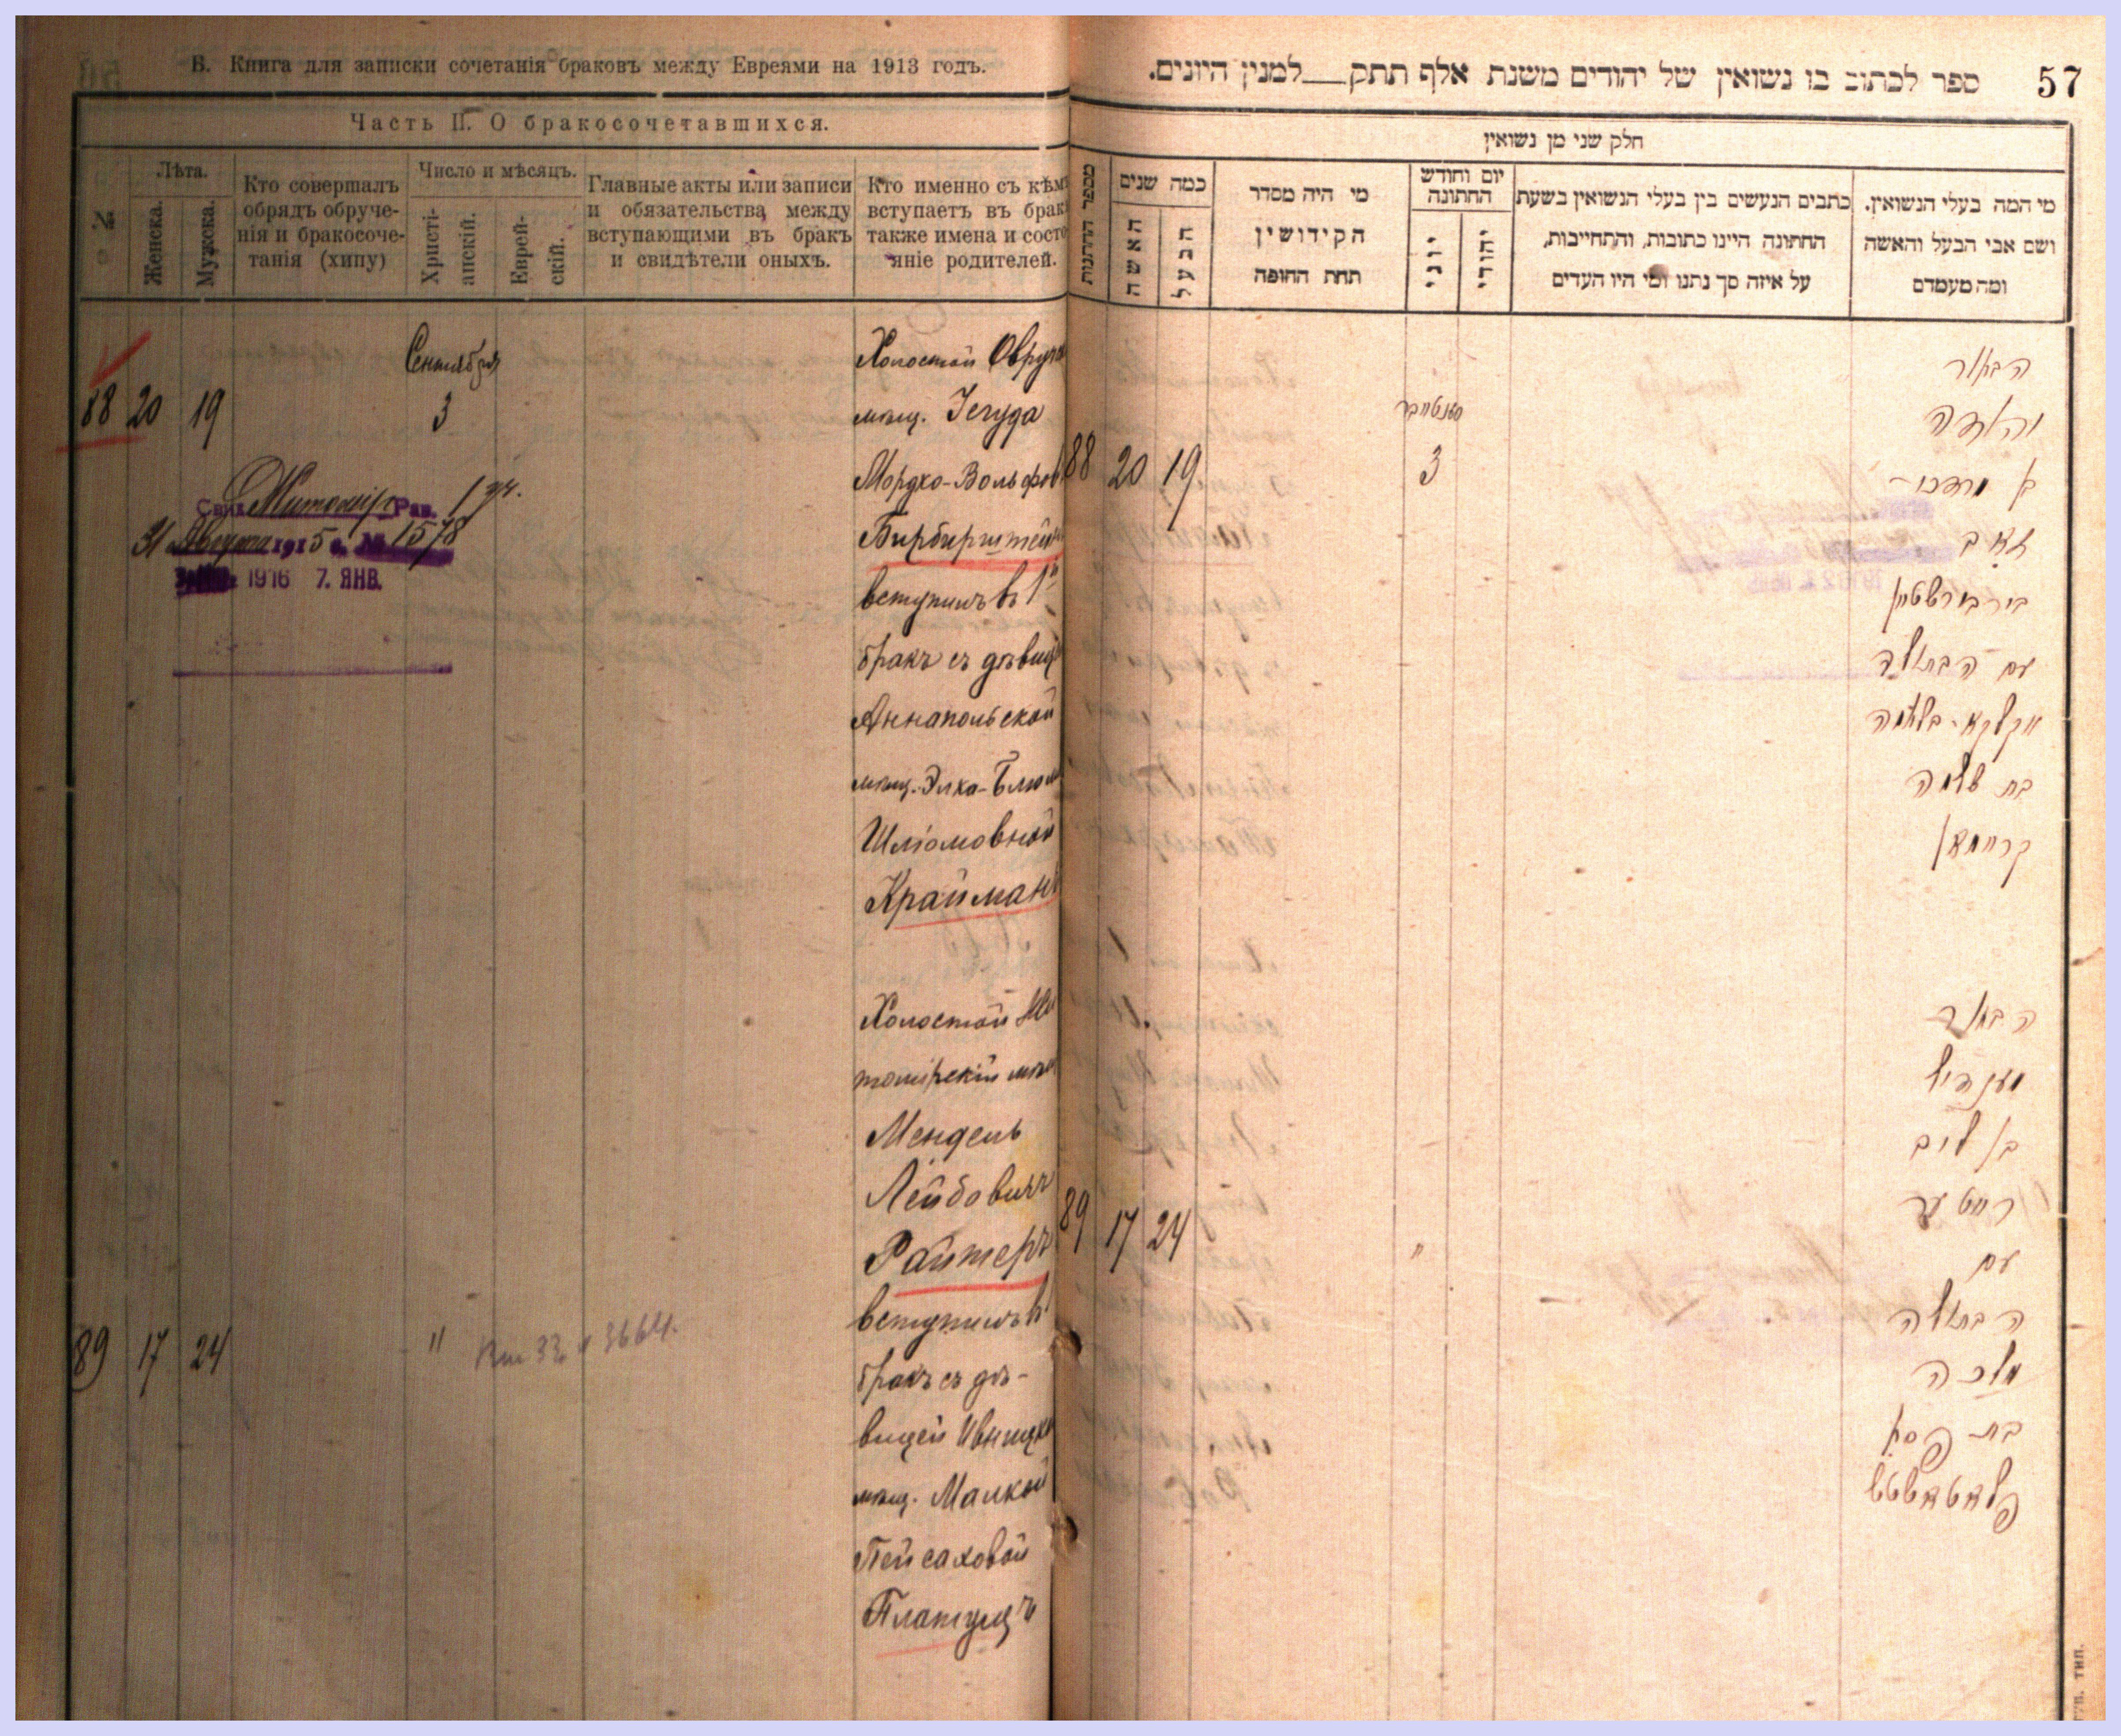 Б. Книга для записки сочетанія браковъ между Евреями на 1913 годъ.
Часть II. О бракосочетавшихся.
№
Лѣта.
Женска.
Мужска.
Кто совершалъ
обрядъ обруче-
нія и бракосоче-
танія (хипу)
Число и мѣсяцъ.
Христі-
анскій.
Еврей-
скій.
Главные акты или записи
и обязательства между
вступающими въ бракъ
и свидѣтели оныхъ.
Кто именно съ кѣмъ
вступаетъ въ бракъ
также имена и состо
яніе родителей.
88 20 19
Сентября
3
Холостой Овруч
мѣщ. Іегуда
Мордко-Вольфов
Бирбирштейн
вступилъ въ 1й
бракъ съ дѣвиц
Аннапольской
мѣщ. Элка-Блюм
Шліомовной
Крайманъ
Свид. Житомір. Рав.
31 Августа 1915 г. № 1578
1916 7. ЯНВ.
89 17 24 "
3664.
Холостой Жи
томірскій мѣщ
Мендель
Лейбовичъ
Райтеръ
вступилъ въ 1
бракъ съ дѣ-
вицей Ивницко
мѣщ. Малкой
Пейсаховой
Платущъ
57
ספר לכתוב בו נשואין של יהודים משנת אלף תתק__למנין היונים.
חלק שני מן נשואין
מי המה בעלי הנשואין.
ושם אבי הבעל והאשה
ומה מעמדם
כתבים הנעשים בין בעלי הנשואין בשעת
החתונה היינו כתובות, והתחייבות,
על איזה סך נתנו ומי היו העדים
יום וחודש
החתונה
יהודי
יוני
מי היה מסדר
הקידושין
תחת החופה
כמה שנים
הבעל
האשה
מספר החתונות
88 20 19
סענטיאבר
3
הבחור
יהודה
בן מרדכי-
זאב
בירבורשטיין
עם הבתולה
עלקא-בלומה
בת שלמה
קריימאן
89 17 24 "
הבחור
מענדיל
בן ליב
רייטער
עם
הבתולה
מלכה
בת פסח